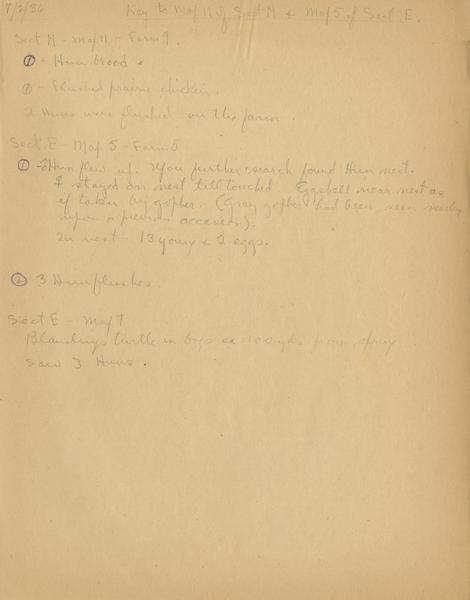 7/2/36 Key to Map 11 of Sect N & Map 5 of Sect. E.
Sect N - Map 11 - Farm 9.
① - Hun brood.
① - Flushed prairie chicken.
2 Huns were flushed on the farm.
Sect. E - Map 5 - Farm 5
① Hun flew up. Upon further search found Hun nest.
♀ stayed on nest till touched. Eggshell near nest as
if taken by gopher. (Gray gopher had been seen nearby
upon a previous occasion).
In nest - 13 young & 2 eggs.
② 3 Hun flushes.
Sect E - Map 7
Blandings turtle in bogs ca 100 yds from
Saw 3 Huns.